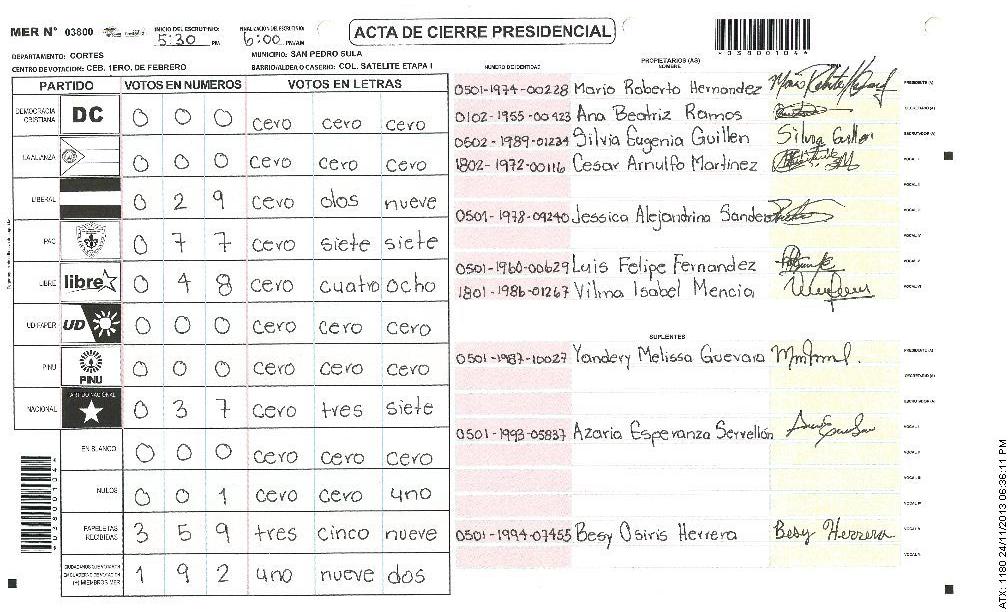 MER Nº 03800 INICIO DEL ESCRUTINIO: 5:30 PM FINALIZACION DEL ESCRUTINIO: 6:00 PM/AM ACTA DE CIERRE PRESIDENCIAL
DEPARTAMENTO: CORTES MUNICIPIO: SAN PEDRO SULA
CENTRO DE VOTACION: CEB. 1ERO. DE FEBRERO BARRIO/ALDEA O CASERIO: COL. SATELITE ETAPA I
PARTIDO VOTOS EN NUMEROS VOTOS EN LETRAS
DEMOCRACIA CRISTIANA DC 0 0 0 cero cero cero
LA ALIANZA 0 0 0 cero cero cero
LIBERAL 0 2 9 cero dos nueve
PAC 0 7 7 cero siete siete
LIBRE libre 0 4 8 cero cuatro ocho
UD FAPER UD 0 0 0 cero cero cero
PINU PINU 0 0 0 cero cero cero
NACIONAL PARTIDO NACIONAL 0 3 7 cero tres siete
EN BLANCO 0 0 0 cero cero cero
NULOS 0 0 1 cero cero uno
PAPELETAS RECIBIDAS 3 5 9 tres cinco nueve
1 9 2 uno nueve dos
NUMERO DE IDENTIDAD PROPIETARIOS (AS) NOMBRE
0501-1974-00228 Mario Roberto Hernandez PRESIDENTE (A)
0102-1955-00423 Ana Beatriz Ramos SECRETARIO (A)
0502-1989-01234 Silvia Eugenia Guillen Silvia Guillen ESCRUTADOR (A)
1802-1972-00116 Cesar Arnulfo Martinez VOCAL I
VOCAL II
0501-1978-09240 Jessica Alejandrina Sande VOCAL III
VOCAL IV
0501-1960-00629 Luis Felipe Fernandez VOCAL V
1801-1986-01267 Vilma Isabel Mencia VOCAL VI
SUPLENTES
0501-1987-10027 Yandery Melissa Guevara PRESIDENTE (A)
SECRETARIO (A)
ESCRUTADOR (A)
0501-1993-05837 Azaria Esperanza Servellón VOCAL I
VOCAL II
VOCAL III
VOCAL IV
0501-1994-07455 Besy Osiris Herrera Besy Herrera VOCAL V
VOCAL VI
*03800104*
*03800104*
ATX: 1180 24/11/2013 06:36:11 PM